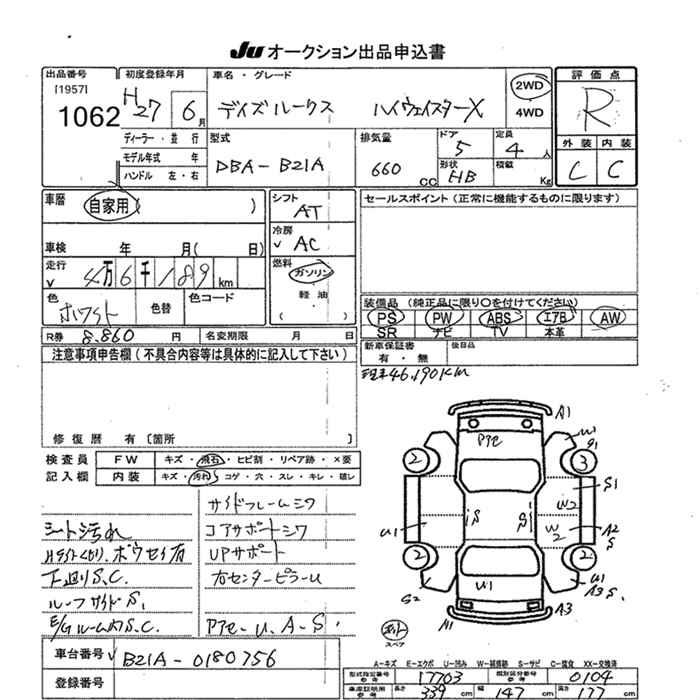 JU オークション出品申込書
出品番号 初度登録年月 車名・グレード 評価点
[1957]
1062 H27 6月 デイズルークス ハイウェイスターX 2WD 4WD R
ディーラー・並行 型式 排気量 ドア 定員 外装 内装
モデル年式 年 DBA-B21A 660CC 5 4人 C C
ハンドル 左・右 形状 HB 積載 Kg
車歴 自家用( ) シフト AT セールスポイント(正常に機能するものに限ります)
冷房 AC
車検 年 月( 日)
走行 4万6千189km 燃料 ガソリン
軽油
( )
色 ホワイト 色替 色コード
装備品(純正品に限り○を付けてください)
PS PW ABS エアB AW
SR ナビ TV 本革
R券 8,860円 名変期限 月 日
新車保証書 後日品
有・無
注意事項申告欄(不具合内容等は具体的に記入して下さい)
現車46,190KM
修復歴 有〔箇所 〕
検査員 FW キズ・飛石・ヒビ割・リペア跡・×要
記入欄 内装 キズ・汚れ・コゲ・穴・スレ・キレ・破レ
サイドフレームシワ
シート汚れ コアサポートシワ
UPサポート
下廻りS.C. 右センターピラーU
ルーフサイドS.
E/GルームS.C.
A1
U1
2 3
S1
W2
U1 S S A2
W2 S
2 2
S2 U1 U1
A3 S
A1 A3
スペア
A-キズ E-エクボ U-凹み W-補修跡 S-サビ C-腐食 XX-交換済
車台番号 B21A-0180756
型式指定番号 参考 17703 類別区分番号 参考 0104
登録番号
車庫証明用 参考 長さ 339cm 幅 147cm 高さ 177cm